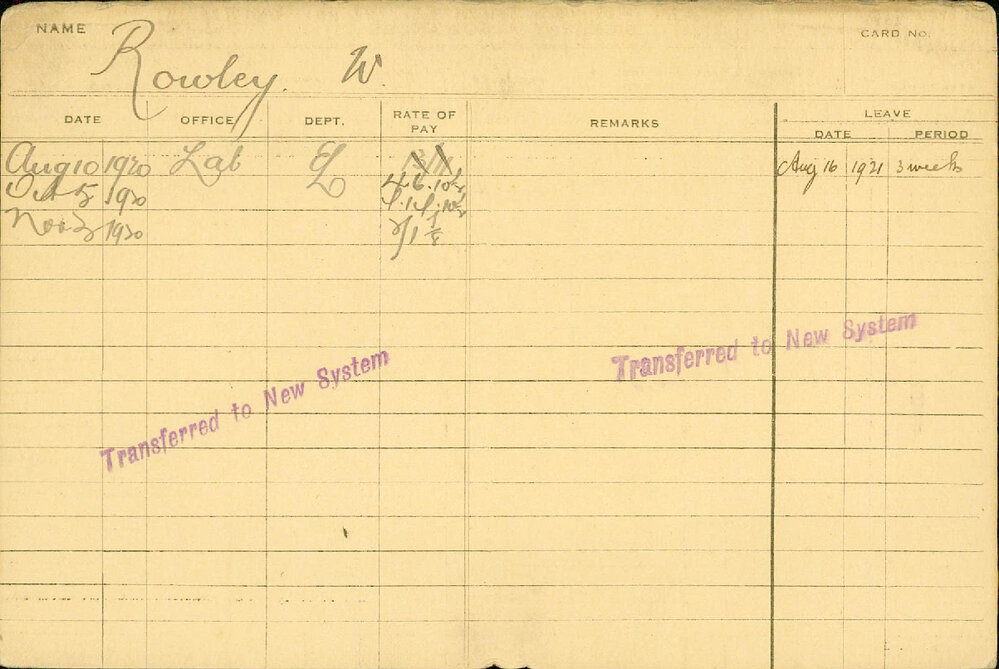 NAME Rowley. W. CARD No.
DATE OFFICE DEPT. RATE OF PAY REMARKS LEAVE
DATE PERIOD
Aug 10 1920 Lab EL Aug 16 1921 3 weeks
Oct 5 1920 4.14.10½
Nov 1920 2/1 ⅞
Transferred to New System
Transferred to New System